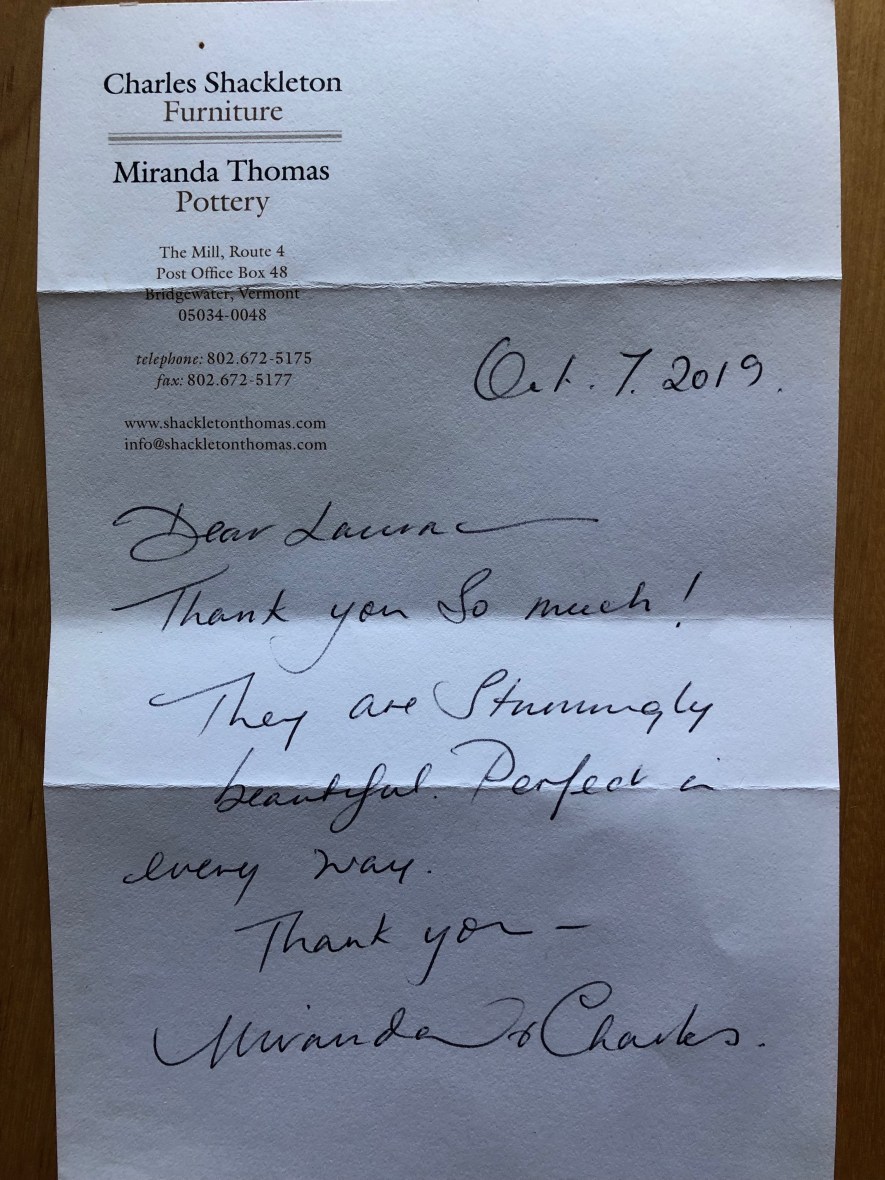 Charles Shackleton
Furniture
Miranda Thomas
Pottery
The Mill, Route 4
Post Office Box 48
Bridgewater, Vermont
05034-0048
telephone: 802.672-5175
fax: 802.672-5177
www.shackletonthomas.com
info@shackletonthomas.com
Oct. 7. 2019.
Dear Laura
Thank you So much!
They are Stunningly
beautiful. Perfect in
every way.
Thank you –
Miranda & Charles.